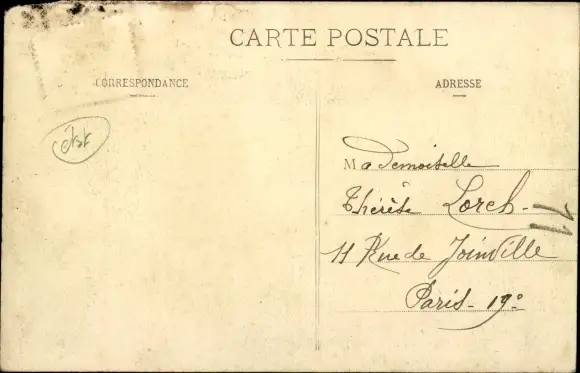 CARTE POSTALE
CORRESPONDANCE
ADRESSE
Mademoiselle
Thérèse Lorch
11 Rue de Joinville
Paris - 19e